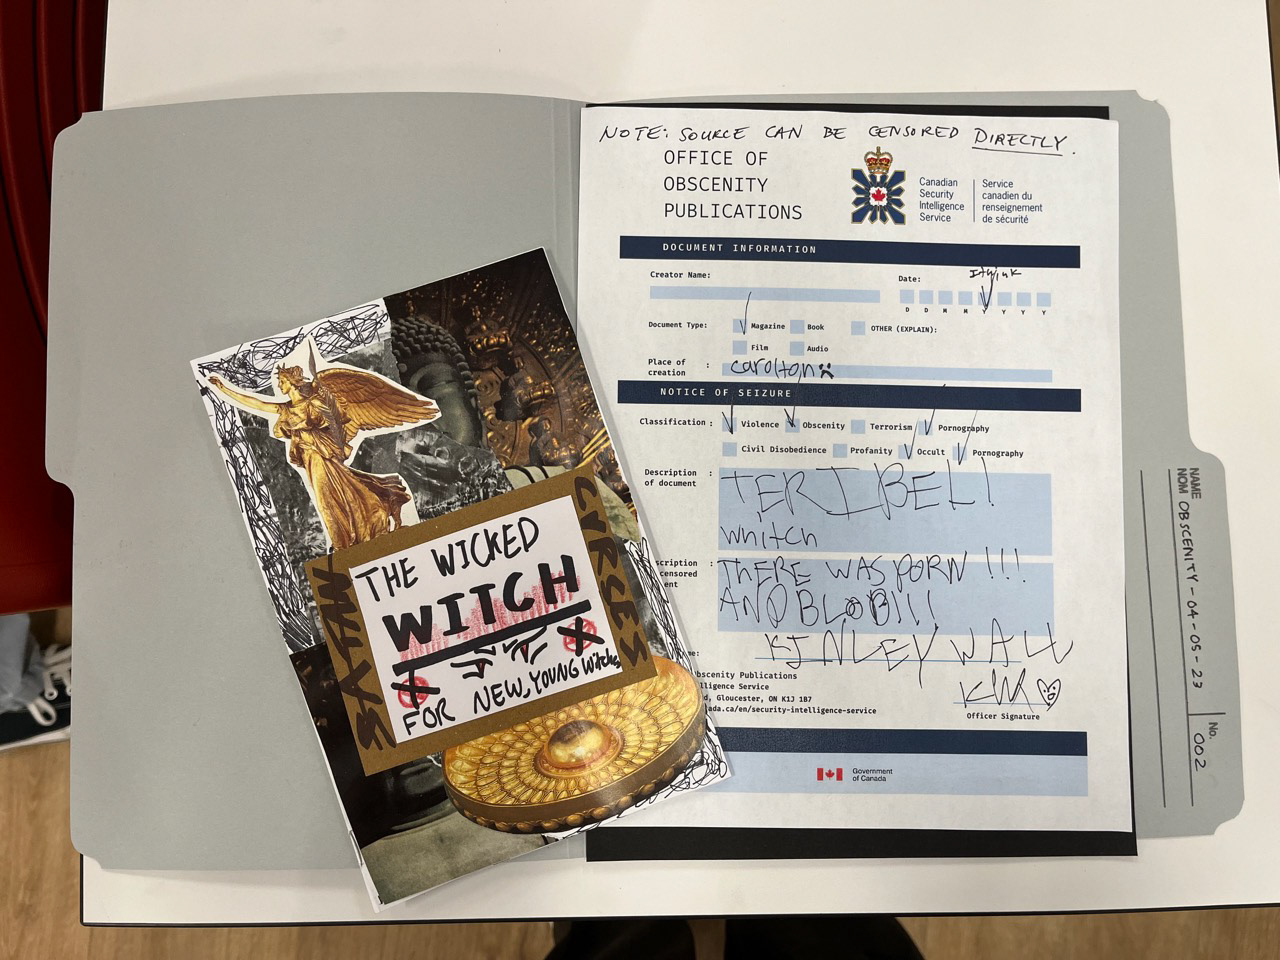 NOTE: SOURCE CAN BE CENSORED DIRECTLY.
OFFICE OF
OBSCENITY
PUBLICATIONS
Canadian
Security
Intelligence
Service
Service
canadien du
renseignement
de sécurité
DOCUMENT INFORMATION
Creator Name:
Date:
D D M M Y Y Y Y
Document Type: Magazine Book OTHER (EXPLAIN):
Film Audio
Place of
creation :
carolton
NOTICE OF SEIZURE
Classification: Violence Obscenity Terrorism Pornography
Civil Disobedience Profanity Occult Pornography
Description
of document :
TERIBEL!
whitch
THERE WAS PORN !!!
AND BLOB!!!
KINLEY WALL
KW
Officer Signature
bscenity Publications
lligence Service
d, Gloucester, ON K1J 1B7
ada.ca/en/security-intelligence-service
Government
of Canada
NAME
NOM OBSCENITY-04-05-23
No.
002
THE WICKED
WITCH
FOR NEW, YOUNG Witches
SATAN
CURSES